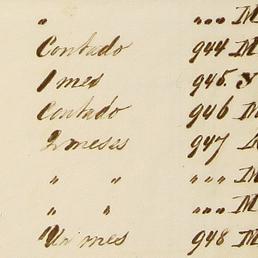 " " " " M
Contado 944 M
1 mes 945. y
Contado 946 M
2 meses 947
" " " " " M
" " " " " M
Un mes 948 M